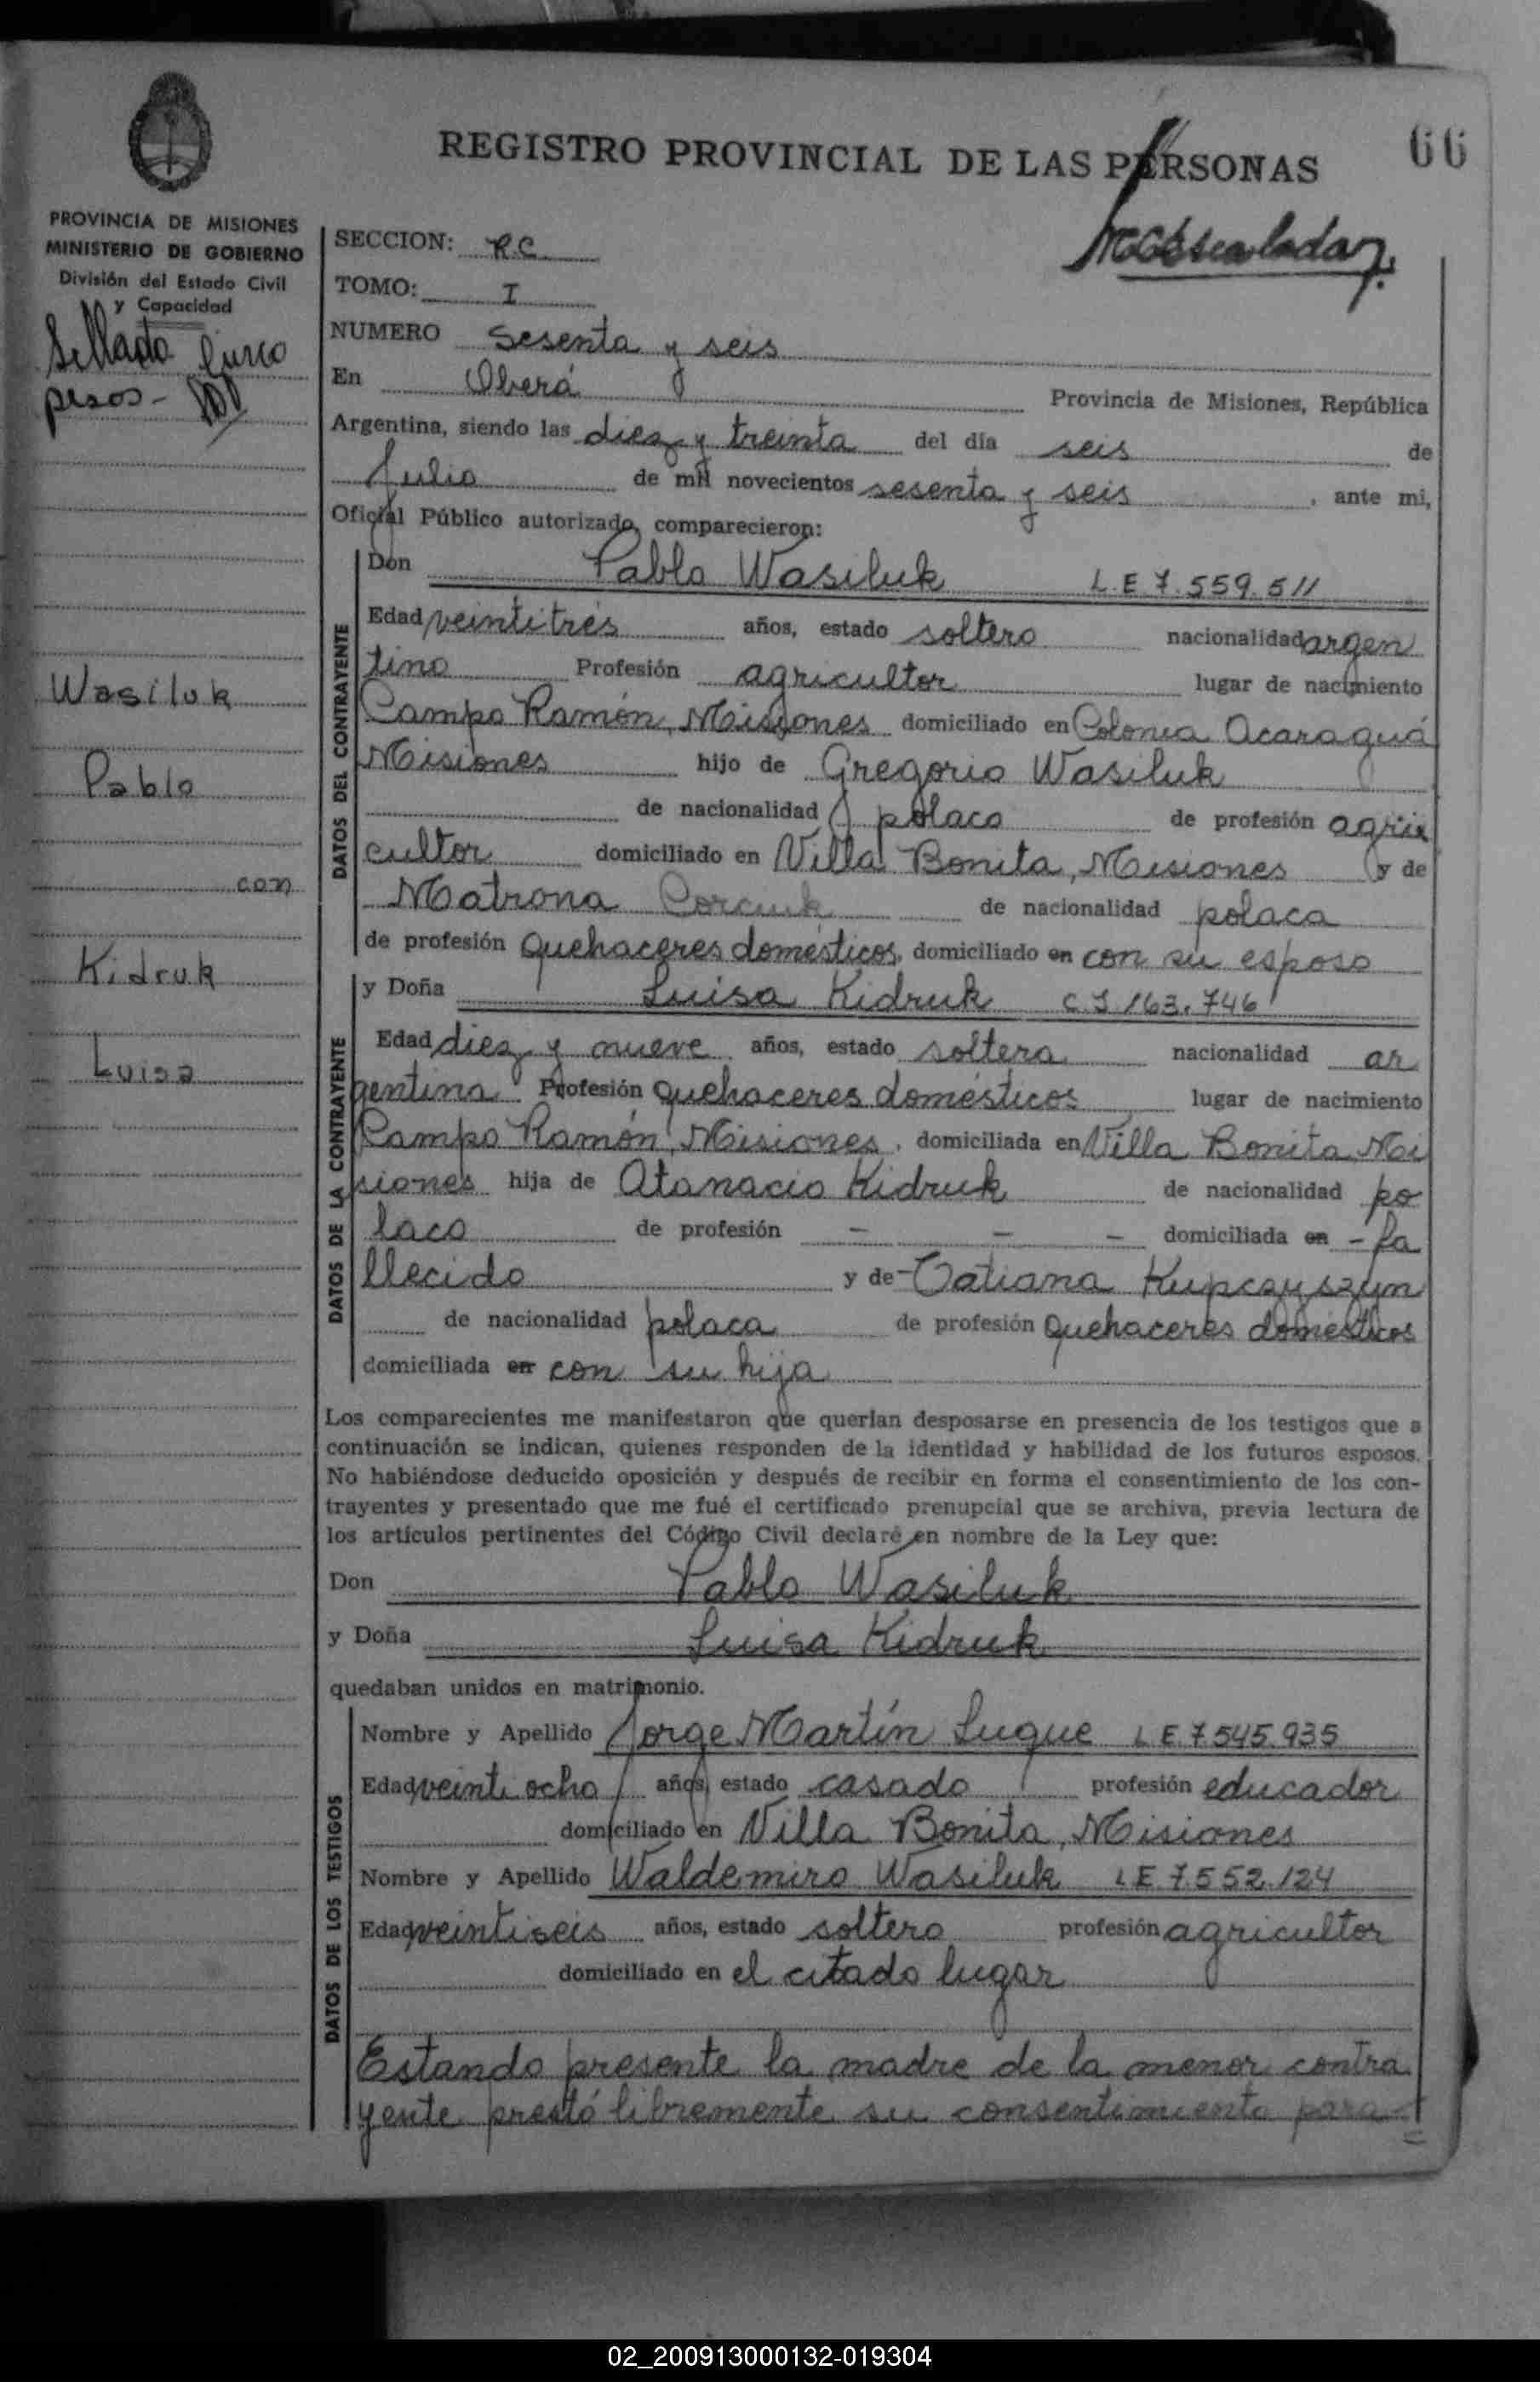 REGISTRO PROVINCIAL DE LAS PERSONAS
66
PROVINCIA DE MISIONES
MINISTERIO DE GOBIERNO
División del Estado Civil
y Capacidad
Sellado Cinco
pesos-
Wasiluk
Pablo
con
Kidruk
Luisa
SECCION: R.C.
TOMO: I
NUMERO Sesenta y seis
En Oberá Provincia de Misiones, República
Argentina, siendo las diez y treinta del día seis de
Julio de mil novecientos sesenta y seis, ante mi,
Oficial Público autorizado, comparecieron:
DATOS DEL CONTRAYENTE
Don Pablo Wasiluk L.E 7.559.511
Edad veintitrés años, estado soltero nacionalidad argen
tino Profesión agricultor lugar de nacimiento
Campo Ramón, Misiones domiciliado en Colonia Acaraguá
Misiones hijo de Gregorio Wasiluk
de nacionalidad polaco de profesión agri
cultor domiciliado en Villa Bonita, Misiones y de
Matrona de nacionalidad polaca
de profesión Quehaceres domésticos, domiciliado en con su esposo
DATOS DE LA CONTRAYENTE
y Doña Luisa Kidruk C I 163.746
Edad diez y nueve años, estado soltera nacionalidad ar
gentina Profesión quehaceres domésticos lugar de nacimiento
Campo Ramón, Misiones, domiciliada en Villa Bonita Mi
siones hija de Atanacio Kidruk de nacionalidad po
laco de profesión - - - domiciliada en - fa
llecido y de - Tatiana Kupczyszyn
de nacionalidad polaca de profesión Quehaceres domésticos
domiciliada en con su hija
Los comparecientes me manifestaron que querían desposarse en presencia de los testigos que a
continuación se indican, quienes responden de la identidad y habilidad de los futuros esposos.
No habiéndose deducido oposición y después de recibir en forma el consentimiento de los con-
trayentes y presentado que me fué el certificado prenupcial que se archiva, previa lectura de
los artículos pertinentes del Código Civil declaré en nombre de la Ley que:
Don Pablo Wasiluk
y Doña Luisa Kidruk
quedaban unidos en matrimonio.
DATOS DE LOS TESTIGOS
Nombre y Apellido Jorge Martín Luque L E 7.545.935
Edad veinti ocho años, estado casado profesión educador
domiciliado en Villa Bonita, Misiones
Nombre y Apellido Waldemiro Wasiluk L E 7.552.124
Edad veintiseis años, estado soltero profesión agricultor
domiciliado en el citado lugar
Estando presente la madre de la menor contra
yente prestó libremente su consentimiento para-
02_200913000132-019304